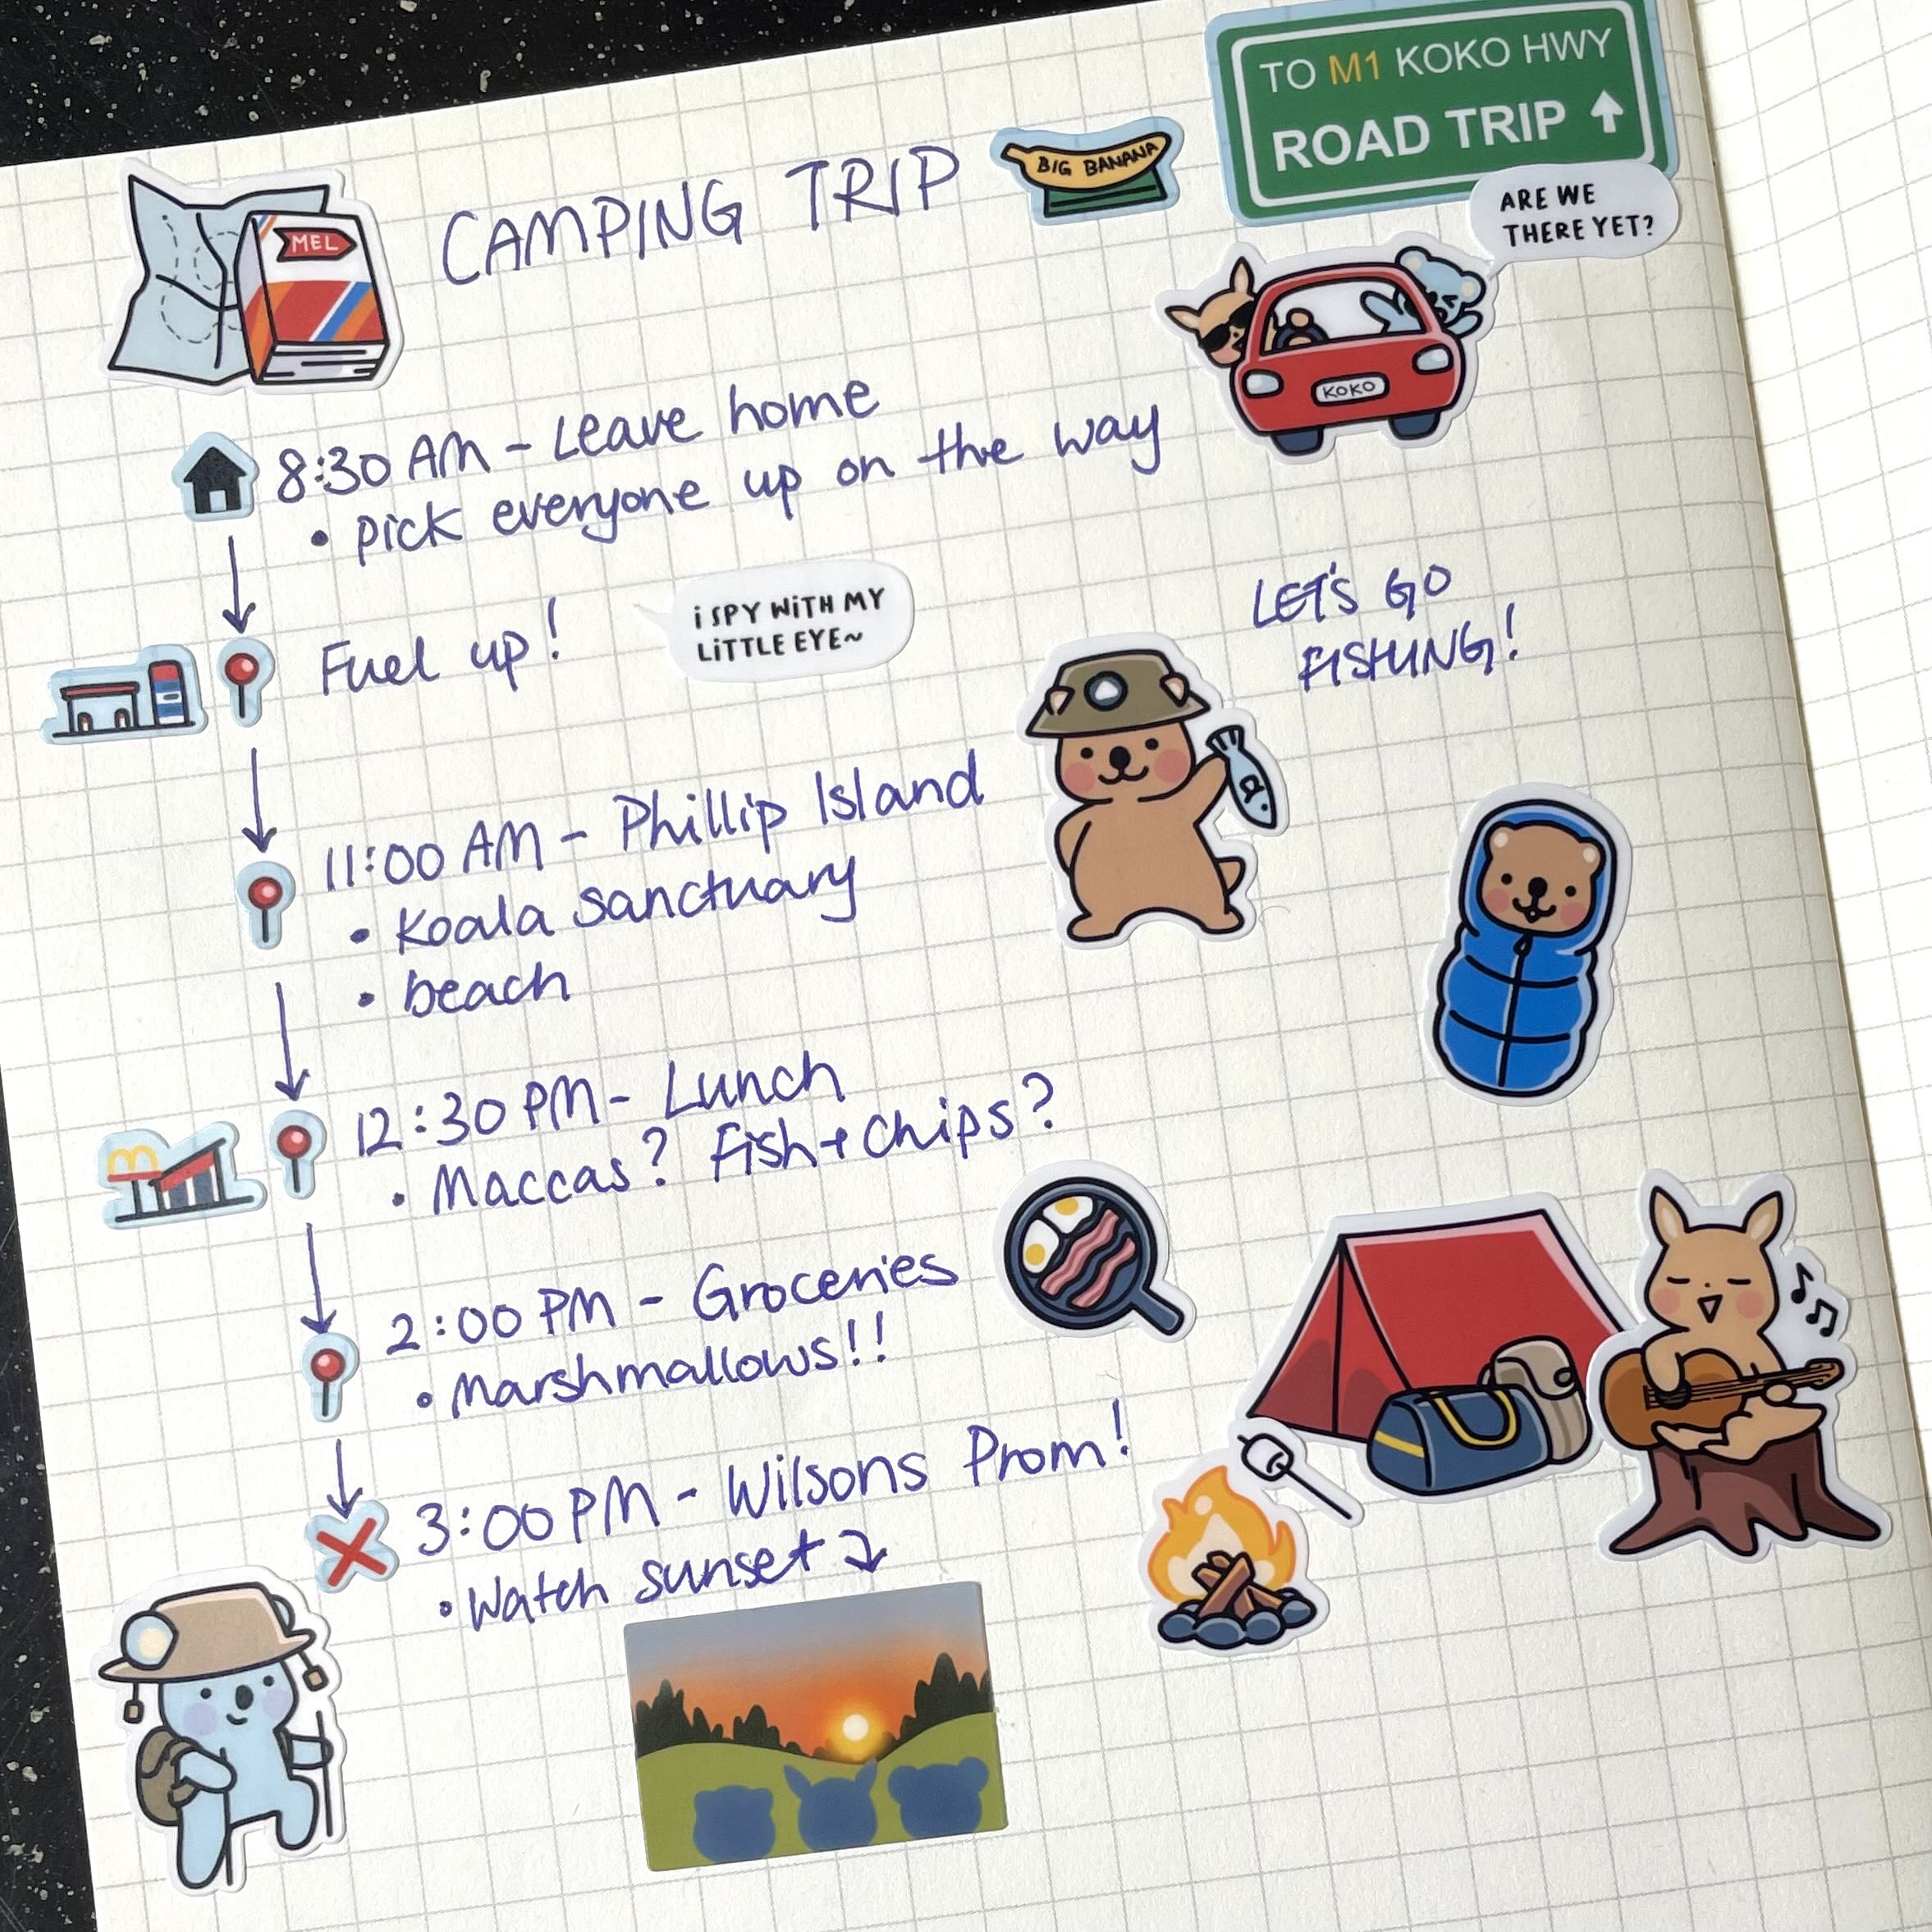 TO M1 KOKO HWY
ROAD TRIP ↑
CAMPING TRIP
BIG BANANA
MEL
ARE WE
THERE YET?
KOKO
8:30 AM - Leave home
• pick everyone up on the way
Fuel up!
i SPY WiTH MY
LiTTLE EYE~
LET'S GO
FISHING!
11:00 AM - Phillip Island
• Koala sanctuary
• beach
12:30 PM - Lunch
• Maccas? Fish + Chips?
2:00 PM - Groceries
• Marshmallows!!
3:00 PM - Wilsons Prom!
• Watch sunset